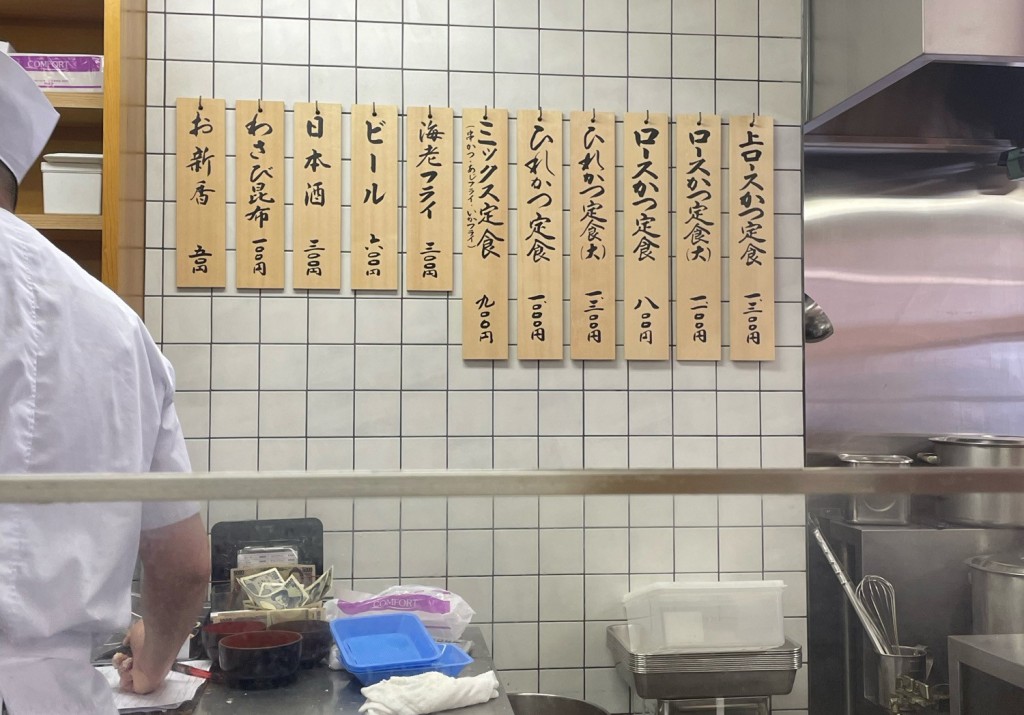 上ロースかつ定食 一、三〇〇円
ロースかつ定食(大) 一、一〇〇円
ロースかつ定食 八〇〇円
ひれかつ定食(大) 一、三〇〇円
ひれかつ定食 一、〇〇〇円
ミックス定食 九〇〇円
(串かつ・あじフライ・いかフライ)
海老フライ 三〇〇円
ビール 六〇〇円
日本酒 三〇〇円
わさび昆布 一〇〇円
お新香 五〇円
COMFORT
COMFORT